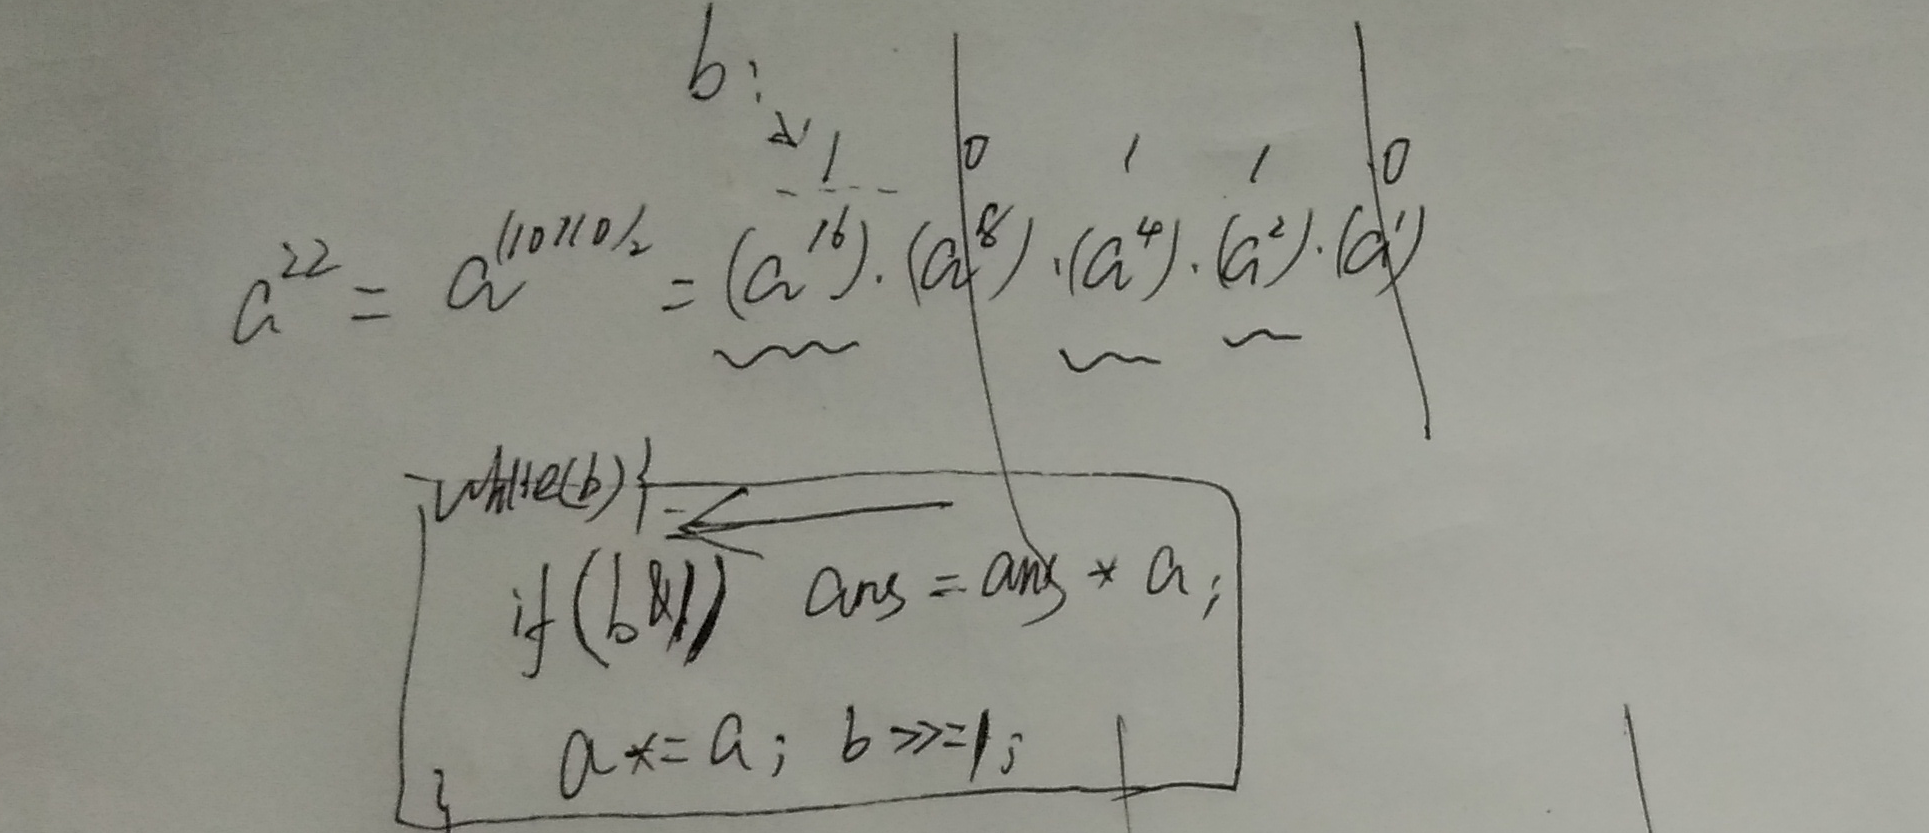 b:
1 0 1 1 0
a²² = a⁽¹⁰¹¹⁰⁾₂ = (a¹⁶)·(a⁸)·(a⁴)·(a²)·(a¹)
while(b){
if(b&1) ans = ans * a;
a*=a; b>>=1;
}